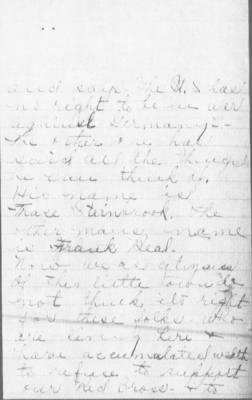 and says the U.S has
no right to be in war
against Germany--
The other one has
said all the things
he can think of.
His name is
Steinbrook. The
other mans name
is Frank Deal.
Now we as citizens
of this little town do
not think its right
for these folks who
are living here &
have accumulated wealth
to refuse to support
our Red Cross - & to